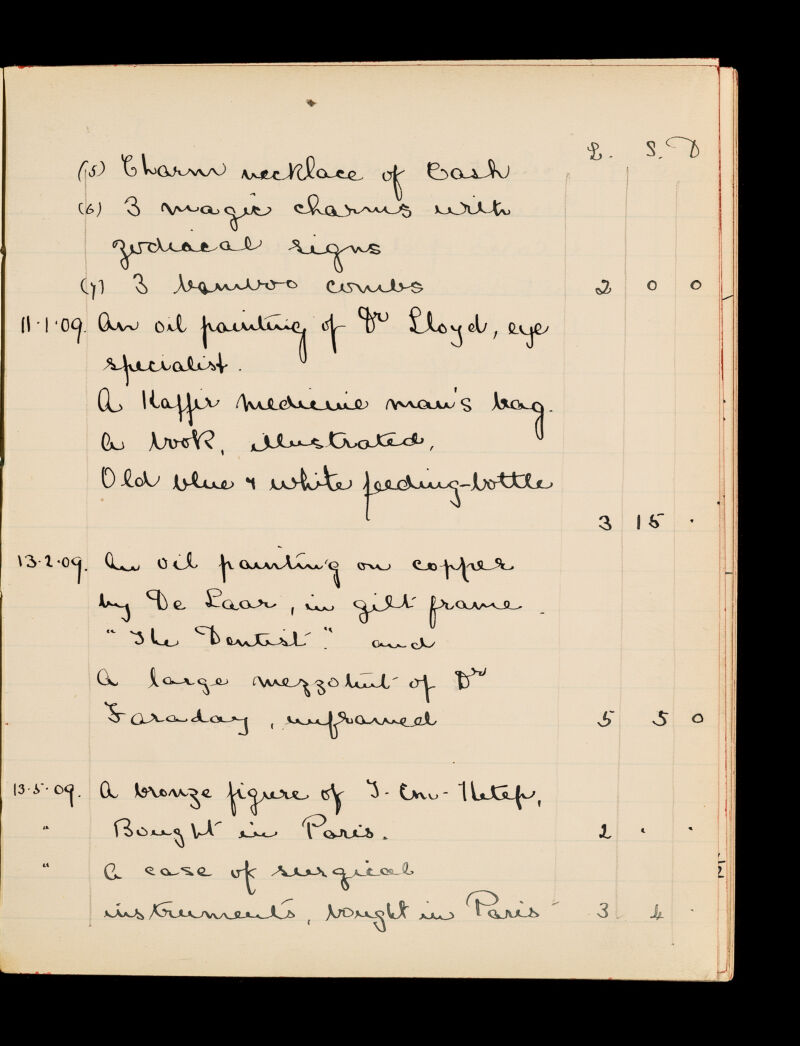 £. S. D
(5) Charm necklace of Cash
(6) 3 magic charms with
zodiacal signs
(7) 3 bamboo combs 2 0 0
11.1.09. An oil painting of Dr Lloyd, eye
specialist.
A Kaffir medicine man's bag.
A book, illustrated,
Old blue & white feeding-bottle
3 15 .
13.2.09. An oil painting on copper
by De Laar, in gilt frame.
"The Dentist." and
A large mezzotint of Dr
Faraday, unframed 5 5 0
13.5.09. A bronze figure of I-Em-Hetep,
" Bought in Paris. 2 . .
" A case of surgical
instruments, bought in Paris 3 4 .